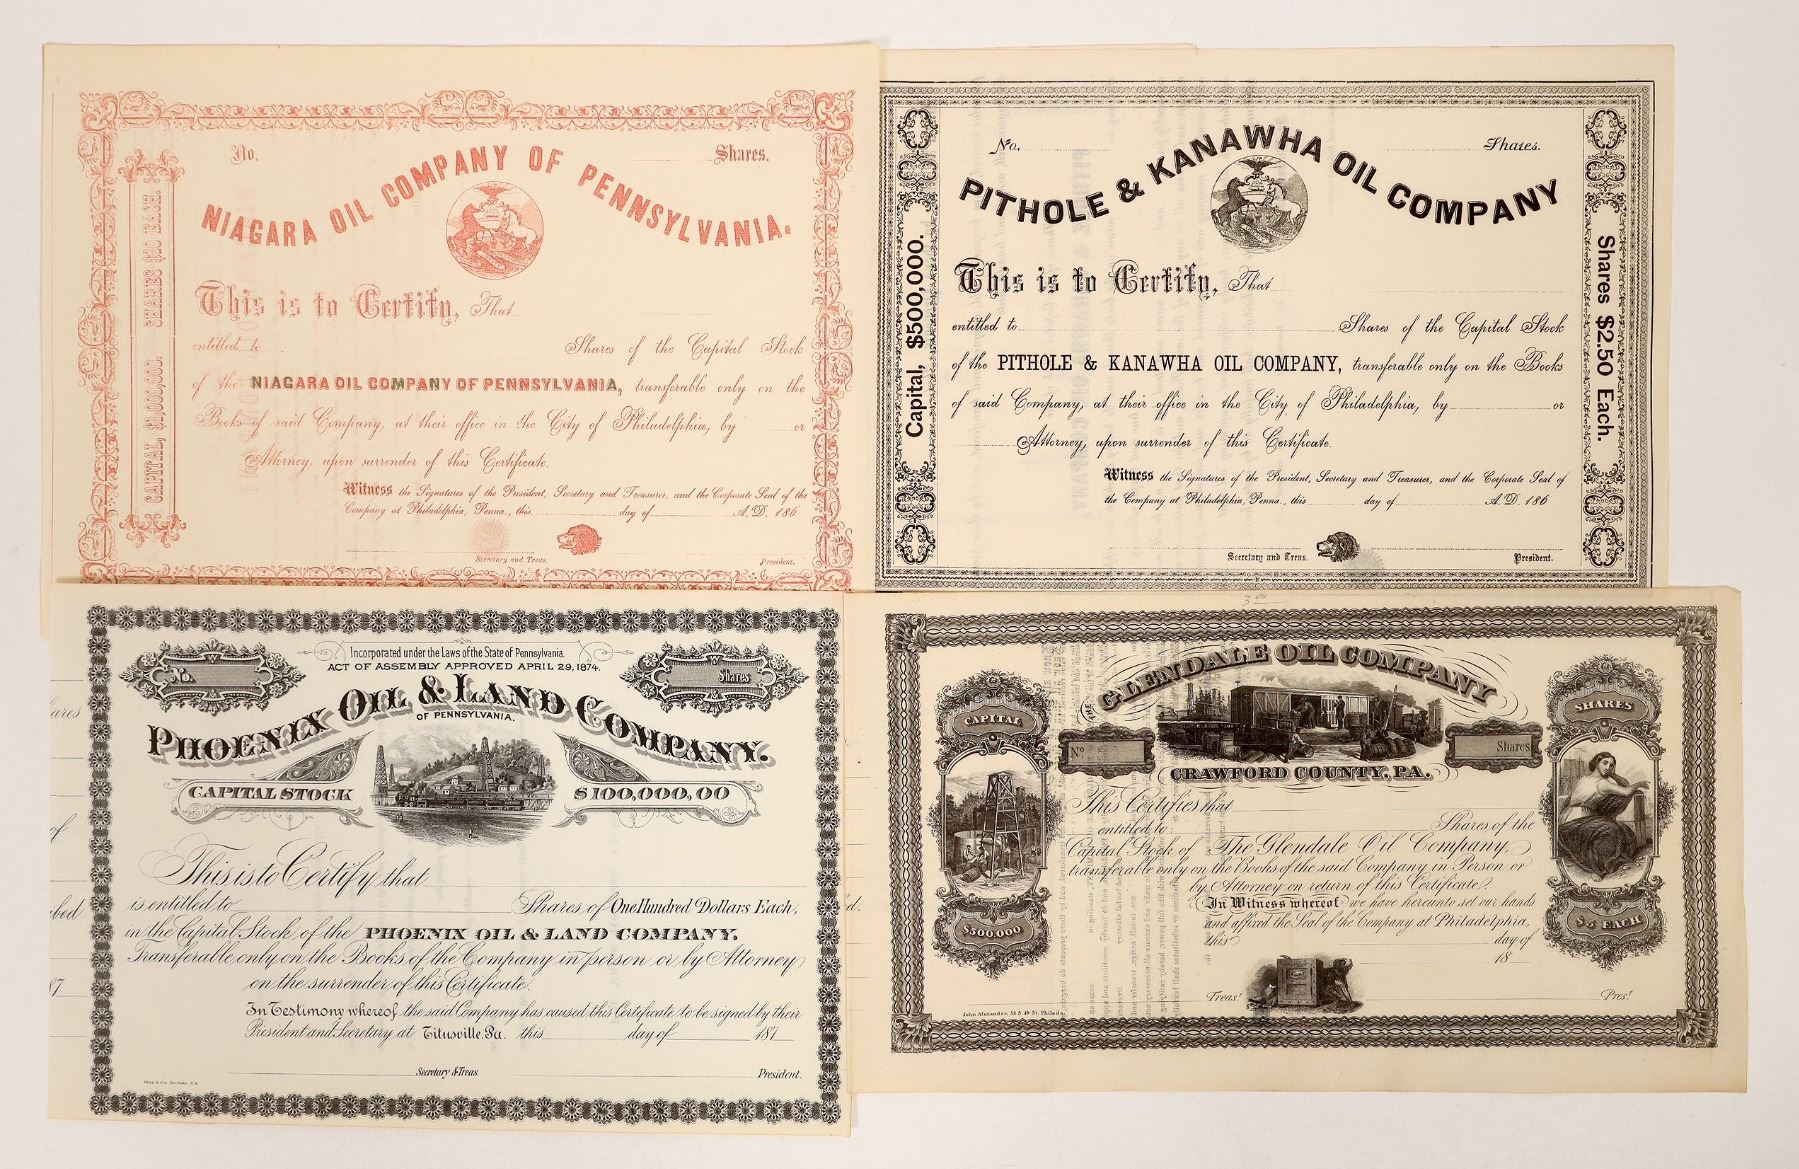 No. Shares.
NIAGARA OIL COMPANY OF PENNSYLVANIA.
CAPITAL, $1,000,000. SHARES $10 EACH.
This is to Certify, That
entitled to Shares of the Capital Stock
of the NIAGARA OIL COMPANY OF PENNSYLVANIA, transferable only on the
Books of said Company, at their office in the City of Philadelphia, by or
Attorney, upon surrender of this Certificate.
Witness the Signatures of the President, Secretary and Treasurer, and the Corporate Seal of the
Company at Philadelphia, Penna., this day of A.D. 186
Secretary and Treas. President.
No. Shares.
PITHOLE & KANAWHA OIL COMPANY
Capital, $500,000.
Shares $2.50 Each.
This is to Certify, That
entitled to Shares of the Capital Stock
of the PITHOLE & KANAWHA OIL COMPANY, transferable only on the Books
of said Company, at their office in the City of Philadelphia, by or
Attorney, upon surrender of this Certificate.
Witness the Signatures of the President, Secretary and Treasurer, and the Corporate Seal of
the Company at Philadelphia, Penna., this day of A.D. 186
Secretary and Treas. President.
Incorporated under the Laws of the State of Pennsylvania.
ACT OF ASSEMBLY APPROVED APRIL 29, 1874.
No. Shares
PHOENIX OIL & LAND COMPANY.
OF PENNSYLVANIA.
CAPITAL STOCK $100,000,00
This is to Certify that
is entitled to Shares of One Hundred Dollars Each,
in the Capital Stock of the PHOENIX OIL & LAND COMPANY.
Transferable only on the Books of the Company in person or by Attorney
on the surrender of this Certificate.
In Testimony whereof the said Company has caused this Certificate to be signed by their
President and Secretary at Titusville, Pa. this day of 187
Secretary & Treas. President.
3 00
THE GLENDALE OIL COMPANY
CAPITAL
SHARES
No Shares
CRAWFORD COUNTY, PA.
This Certifies that
entitled to Shares of the
Capital Stock of The Glendale Oil Company,
transferable only on the Books of the said Company in Person or
by Attorney on return of this Certificate.
In Witness whereof we have hereunto set our hands
and affixed the Seal of the Company at Philadelphia,
this day of
18
$500,000
$5 EACH
Treasr. Prest.
John Alexander, 52 S 4th St. Philada.